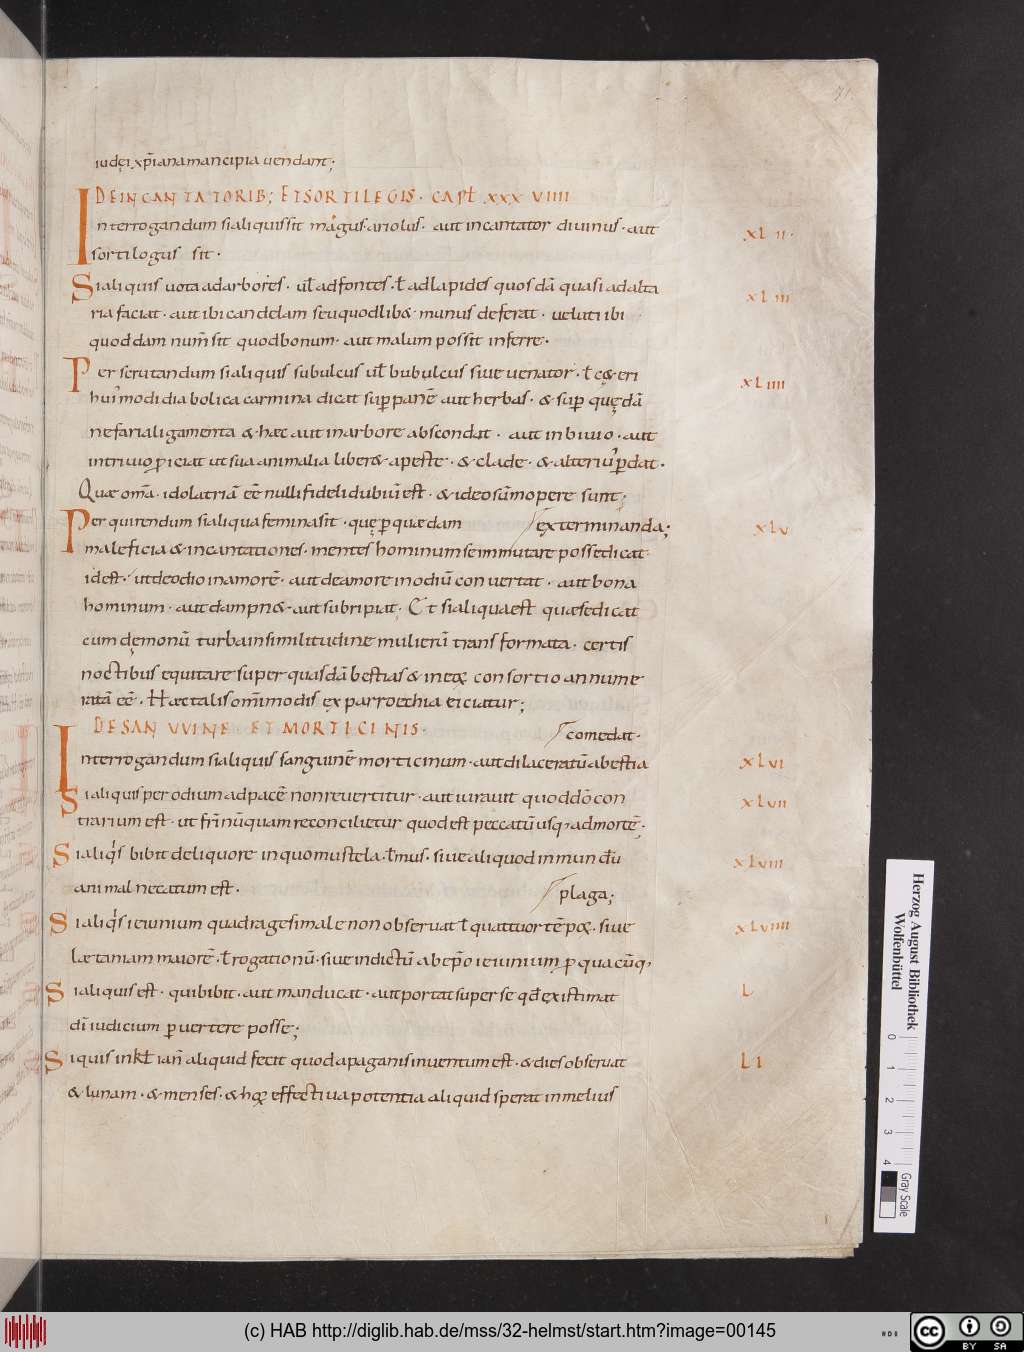 71
iudęi xp̄iana mancipia uendant;
DE INCANTATORIB; ET SORTILEGIS. CAPĪT XXXVIIII
Interrogandum si aliquis sit magus. ariolus. aut incantator diuinus. aut
sortilogus sit.
XLII.
Si aliquis uota ad arbores. ul̄ ad fontes. ł ad lapides quosdā quasi ad alta
XLIII
ria faciat. aut ibi candelam seu quodlib& munus deferat. uelut ibi
quoddam num̄ sit quod bonum. aut malum possit inferre.
Perscrutandum si aliquis subulcus ul̄ bubulcus siue uenator. ł cęteri
XLIIII
huiꝰmodi diabolica carmina dicat sup̱ panē aut herbas. & sup̱ quędā
nefaria ligamenta & hæc aut in arbore abscondat. aut in biuio. aut
in triuio ꝓiciat ut sua animalia liber& a peste. & clade. & alteriꝰ ꝑdat.
Quæ om̄a idolatriā eē nulli fideli dubiū est. & ideo sūmopere sunt;
Perquirendum si aliqua femina sit. quę ꝑ quædam
exterminanda;
XLV
maleficia & incantationes. mentes hominum se immutare posse dicat.
id est. ut de odio in amorē. aut de amore in odiū conuertat. aut bona
hominum. aut dampn&. aut subripiat. Et si aliqua est quæ se dicat
cum dęmonū turba in similitudine mulierū transformata. certis
noctibus equitare super quasdā bestias & in eoꝝ consortio annume
ratā eē. Hæc talis om̄imodis ex parroechia eiciatur;
DE SANGUINE ET MORTICINIS.
comedat.
Interrogandum si aliquis sanguinē morticinum. aut dilaceratū a bestia
XLVI
Si aliquis per odium ad pacē non reuertitur. aut iurauit quoddō con
XLVII
trarium est. ut fr̄i nūquam reconcilietur quod est peccatū usq; ad mortē;
Si aliqͥs bibit de liquore in quo mustela. ł mus. siue aliquod inmundū
XLVIII
animal necatum est.
plaga;
Si aliqͥs ieiunium quadragesimale non obseruat ł quattuor tēpoꝝ. siue
XLVIIII
lætaniam maiorē. ł rogationū. siue indictū ab ep̄o ieiunium ꝓ quacūq;
Si aliquis est. qui bibit. aut manducat. aut portat super se qd̄ existimat
L
dī iudicium ꝑuertere posse;
Si quis in kl̄ ian̄ aliquid fecit quod a paganis inuentum est. & dies obseruat
LI
& lunam. & menses. & hoꝝ effectiua potentia aliquid sperat in melius
Herzog August Bibliothek
Wolfenbüttel
0
1
2
3
4
Gray Scale
(c) HAB http://diglib.hab.de/mss/32-helmst/start.htm?image=00145
cc
BY SA